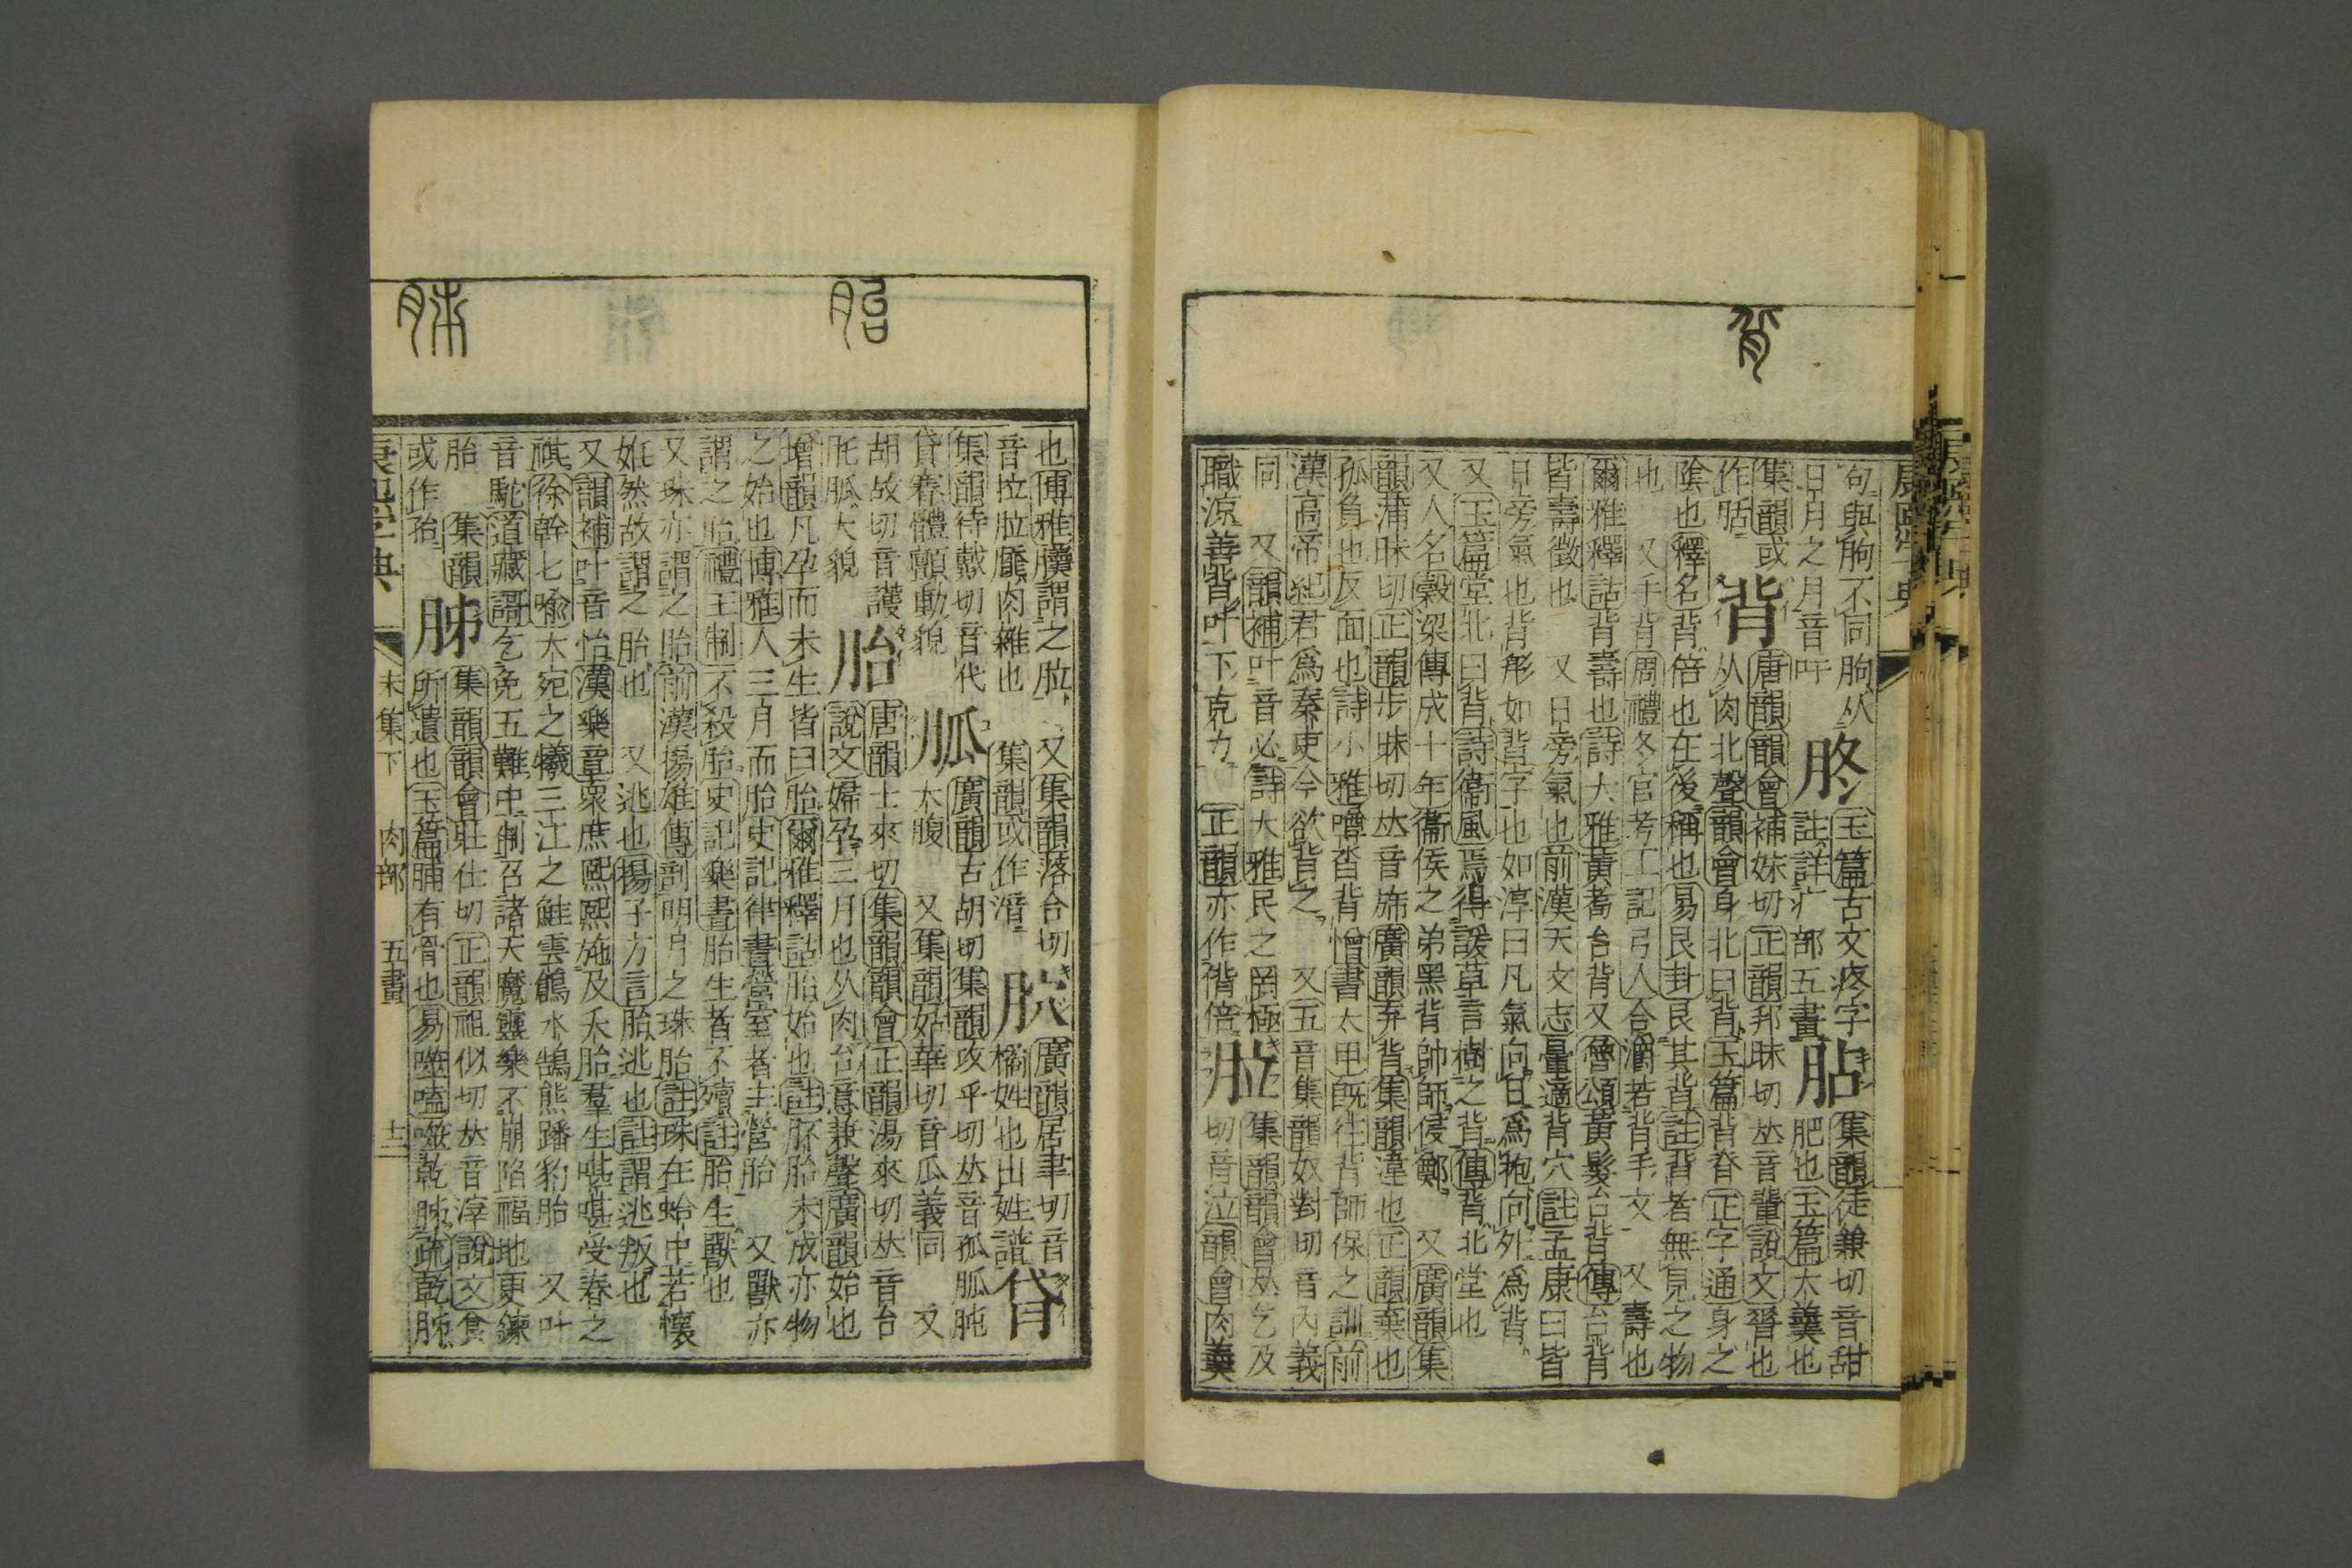 背
句與朐不同朐从
日月之月音吁
胳
玉篇古文疼字
註詳疒部五畫
胋
集韻徒兼切音甜
肥也玉篇大羹也
集韻或
作𦙶
背
唐韻韻會補妹切正韻邦昧切𠀤音輩說文脊也
从肉北聲韻會身北曰背玉篇背脊正字通身之
陰也釋名背倍也在後稱也易艮卦艮其背註背者無見之物
也 又手背周禮冬官考工記弓人合灂若背手文 又壽也
爾雅釋詁背壽也詩大雅黃耇台背又魯頌黃髮台背傳台背
皆壽徵也 又日旁氣也前漢天文志暈適背穴註孟康曰皆
日旁氣也背形如背字也如淳曰凡氣向日爲抱向外爲背
又玉篇堂北曰背詩衞風焉得諼草言樹之背傳背北堂也
又人名穀梁傳成十年衞侯之弟黑背帥師侵鄭 又廣韻集
韻蒲昧切正韻步昧切𠀤音旆廣韻弃背集韻違也正韻棄也
孤負也反面也詩小雅噂沓背憎書太甲旣往背師保之訓前
漢高帝紀君爲秦吏今欲背之 又五音集韻奴對切音內義
同 又韻補叶音必詩大雅民之罔極
職涼善背叶下克力 正韻亦作偝倍
𦚏
集韻韻會𠀤乞及
切音泣韻會肉羹
胎
䏭
也博雅膹謂之𦚏 又集韻落合切
音拉𦚏臘肉雜也 集韻或作湆
廣韻居聿切音
橘姓也出姓譜
集韻待戴切音代
貸䐊體顫動貌
胍
廣韻古胡切集韻攻乎切𠀤音孤胍肫
大腹 又集韻姑華切音瓜義同 又
胡故切音護
𦙛胍大貌
胎
唐韻土來切集韻韻會正韻湯來切𠀤音台
說文婦孕三月也从肉台意兼聲廣韻始也
增韻凡孕而未生皆曰胎爾雅釋詁胎始也註胚胎未成亦物
之始也博雅人三月而胎史記律書營室者主營胎 又獸亦
謂之胎禮王制不殺胎史記樂書胎生者不殰註胎生獸也
又珠亦謂之胎前漢揚雄傳剖明月之珠胎註珠在蛤中若懷
妊然故謂之胎也 又逃也揚子方言胎逃也註謂逃叛也
又韻補叶音怡漢樂章衆庶熙熙施及夭胎羣生啿啿受春之
祺徐幹七喻大宛之犧三江之鮭雲鶬水鵠熊蹯豹胎 又叶
音駝道藏謌乞免五難中制召諸天魔靈樂不崩陷福地更鍊
胎 集韻
或作孡
胏
集韻韻會壯仕切正韻祖似切𠀤音滓說文食
所遺也玉篇脯有骨也易噬嗑噬乾胏疏乾胏
康熙字典 未集下 肉部 五畫 十二